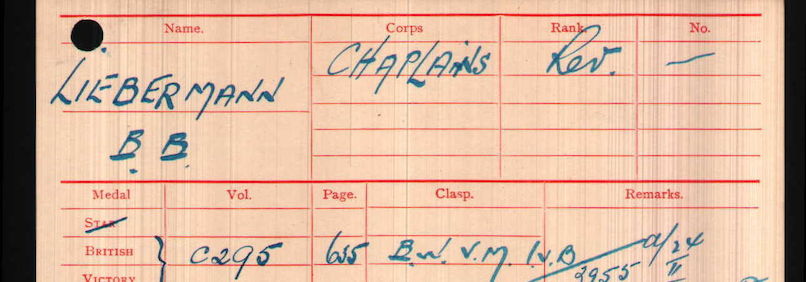 Name. Corps Rank. No.
LIEBERMANN CHAPLAINS Rev. —
B B.
Medal Vol. Page. Clasp. Remarks.
STAR
BRITISH C295 655 B.W. V.M. I.V.B
VICTORY 2955